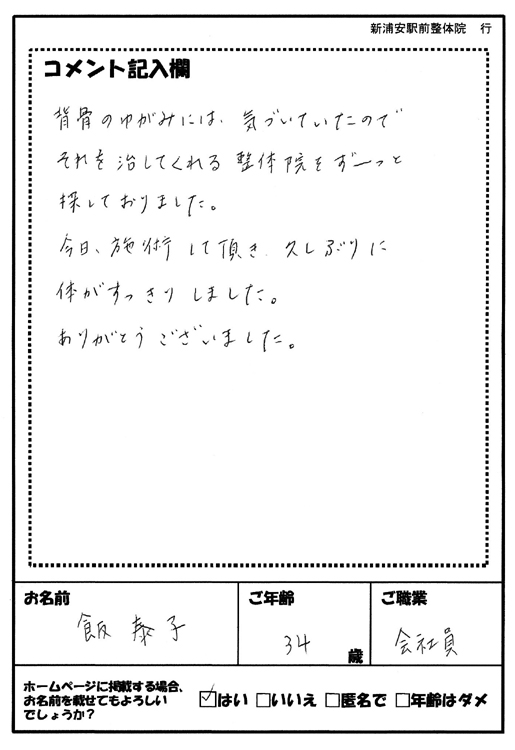 新浦安駅前整体院 行
コメント記入欄
背骨のゆがみには、気づいていたので
それを治してくれる 整体院をずーっと
探しておりました。
今日、施術して頂き、久しぶりに
体がすっきりしました。
ありがとうございました。
お名前 ご年齢 ご職業
飯 泰子 34 歳 会社員
ホームページに掲載する場合、
お名前を載せてもよろしい
でしょうか?
☑はい □いいえ □匿名で □年齢はダメ